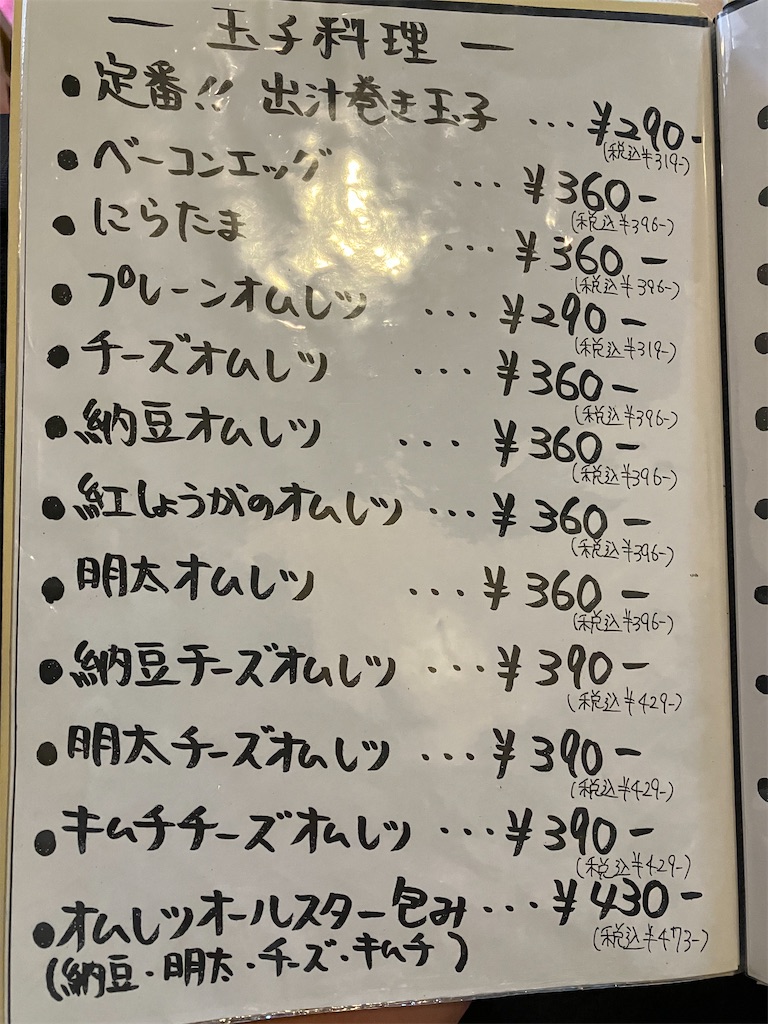 ー 玉子料理 ー
●定番!! 出汁巻き玉子 ... ¥290-
(税込¥319-)
●ベーコンエッグ ... ¥360-
(税込¥396-)
●にらたま ... ¥360-
(税込¥396-)
●プレーンオムレツ ... ¥290-
(税込¥319-)
●チーズオムレツ ... ¥360-
(税込¥396-)
●納豆オムレツ ... ¥360-
(税込¥396-)
●紅しょうがのオムレツ ... ¥360-
(税込¥396-)
●明太オムレツ ... ¥360-
(税込¥396-)
●納豆チーズオムレツ ... ¥390-
(税込¥429-)
●明太チーズオムレツ ... ¥390-
(税込¥429-)
●キムチチーズオムレツ ... ¥390-
(税込¥429-)
●オムレツオールスター包み ... ¥430-
(税込¥473-)
(納豆・明太・チーズ・キムチ)